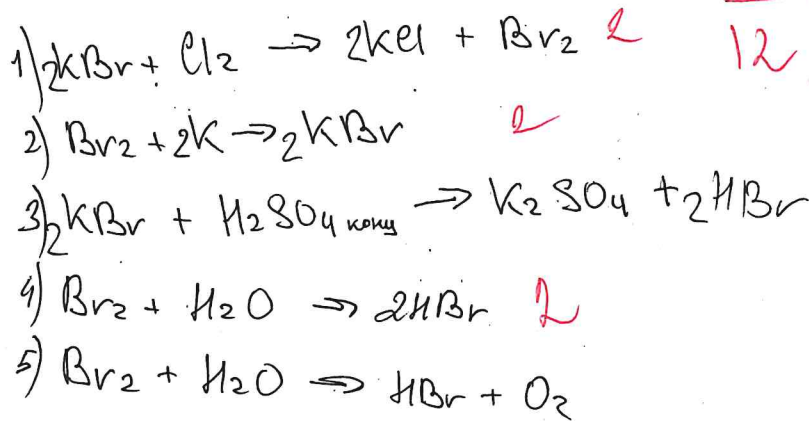 1) 2KBr + Cl2 → 2KCl + Br2 2 12
2) Br2 + 2K → 2KBr 2
3) 2KBr + H2SO4 конц → K2SO4 + 2HBr
4) Br2 + H2O → 2HBr 2
5) Br2 + H2O → HBr + O2